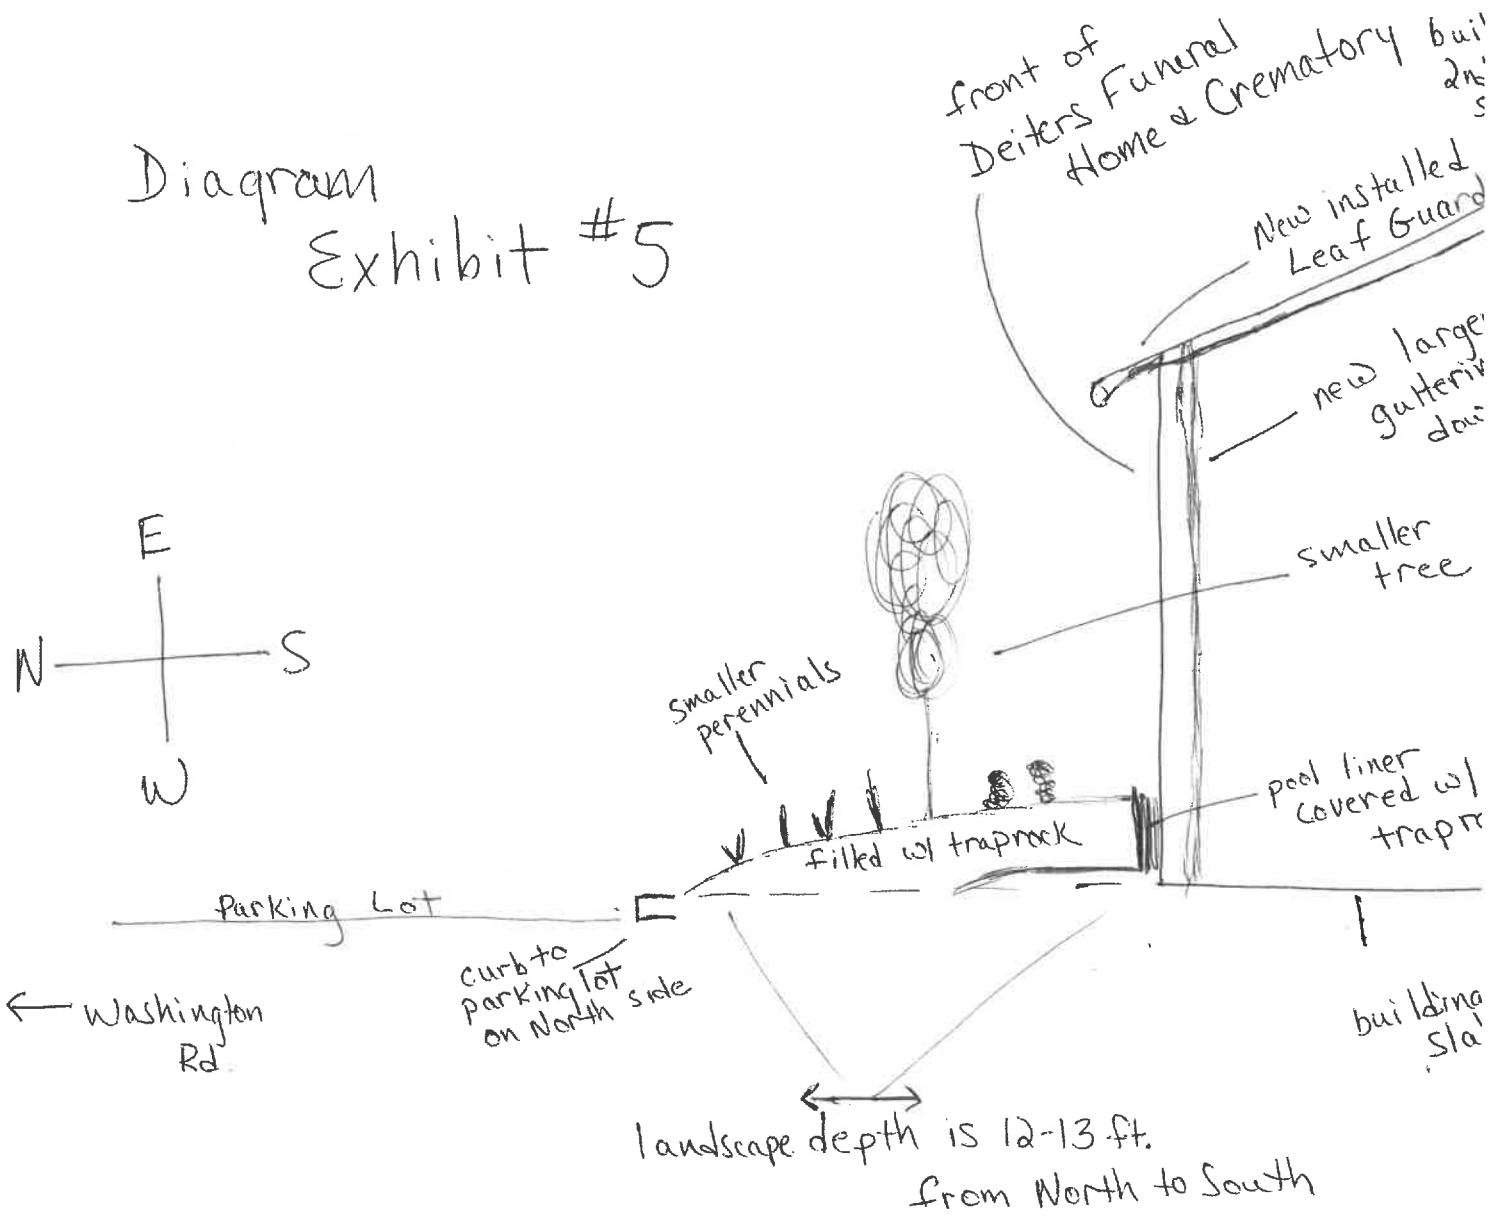 Diagram
Exhibit #5
front of
Deiters Funeral
Home & Crematory
New installed
Leaf Guard
new
smaller
tree
E
N
S
W
smaller
perennials
pool liner
covered w/
filled w/ traprock
Parking Lot
curb to
parking lot
on North side
← Washington
Rd.
building
landscape depth is 12-13 ft.
from North to South